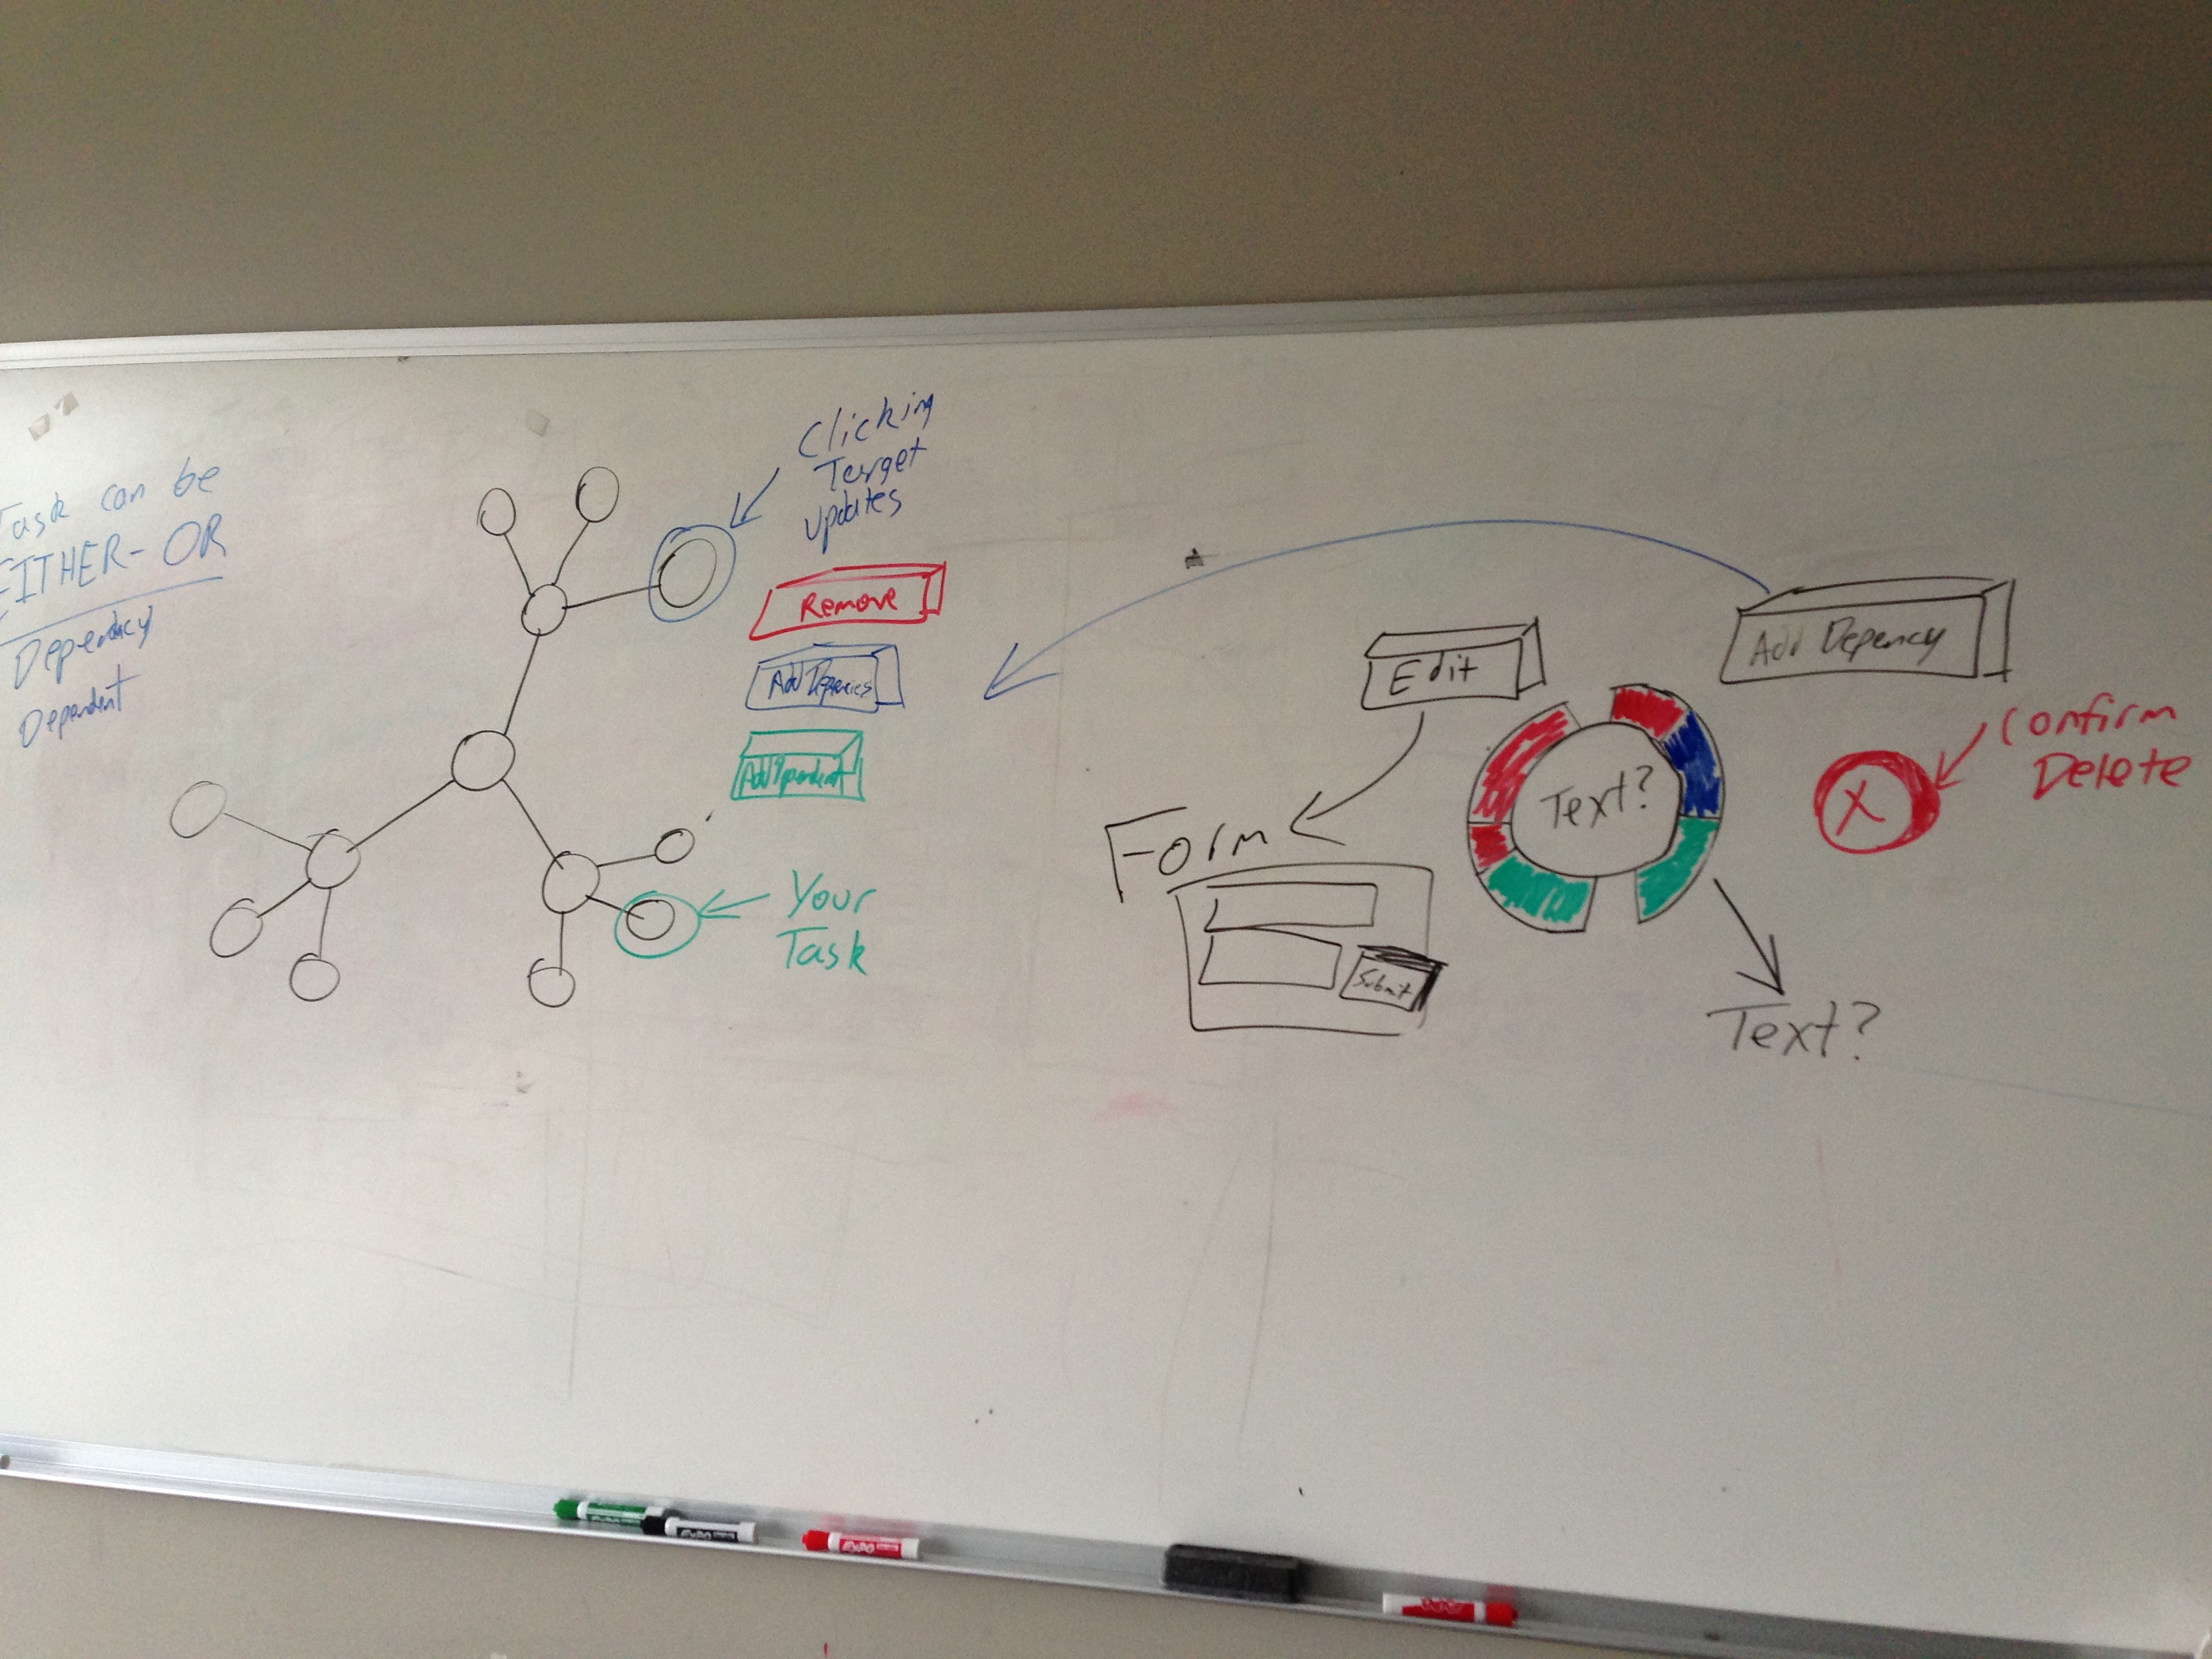 Task can be
EITHER-OR
Dependacy
Dependent
Clicking
Target
updates
Remove
Add Depencies
Add Dpendent
Your
Task
Edit
Add Depency
Confirm
Delete
X
Text?
Form
Submit
Text?
EXPO
EXPO
EXPO